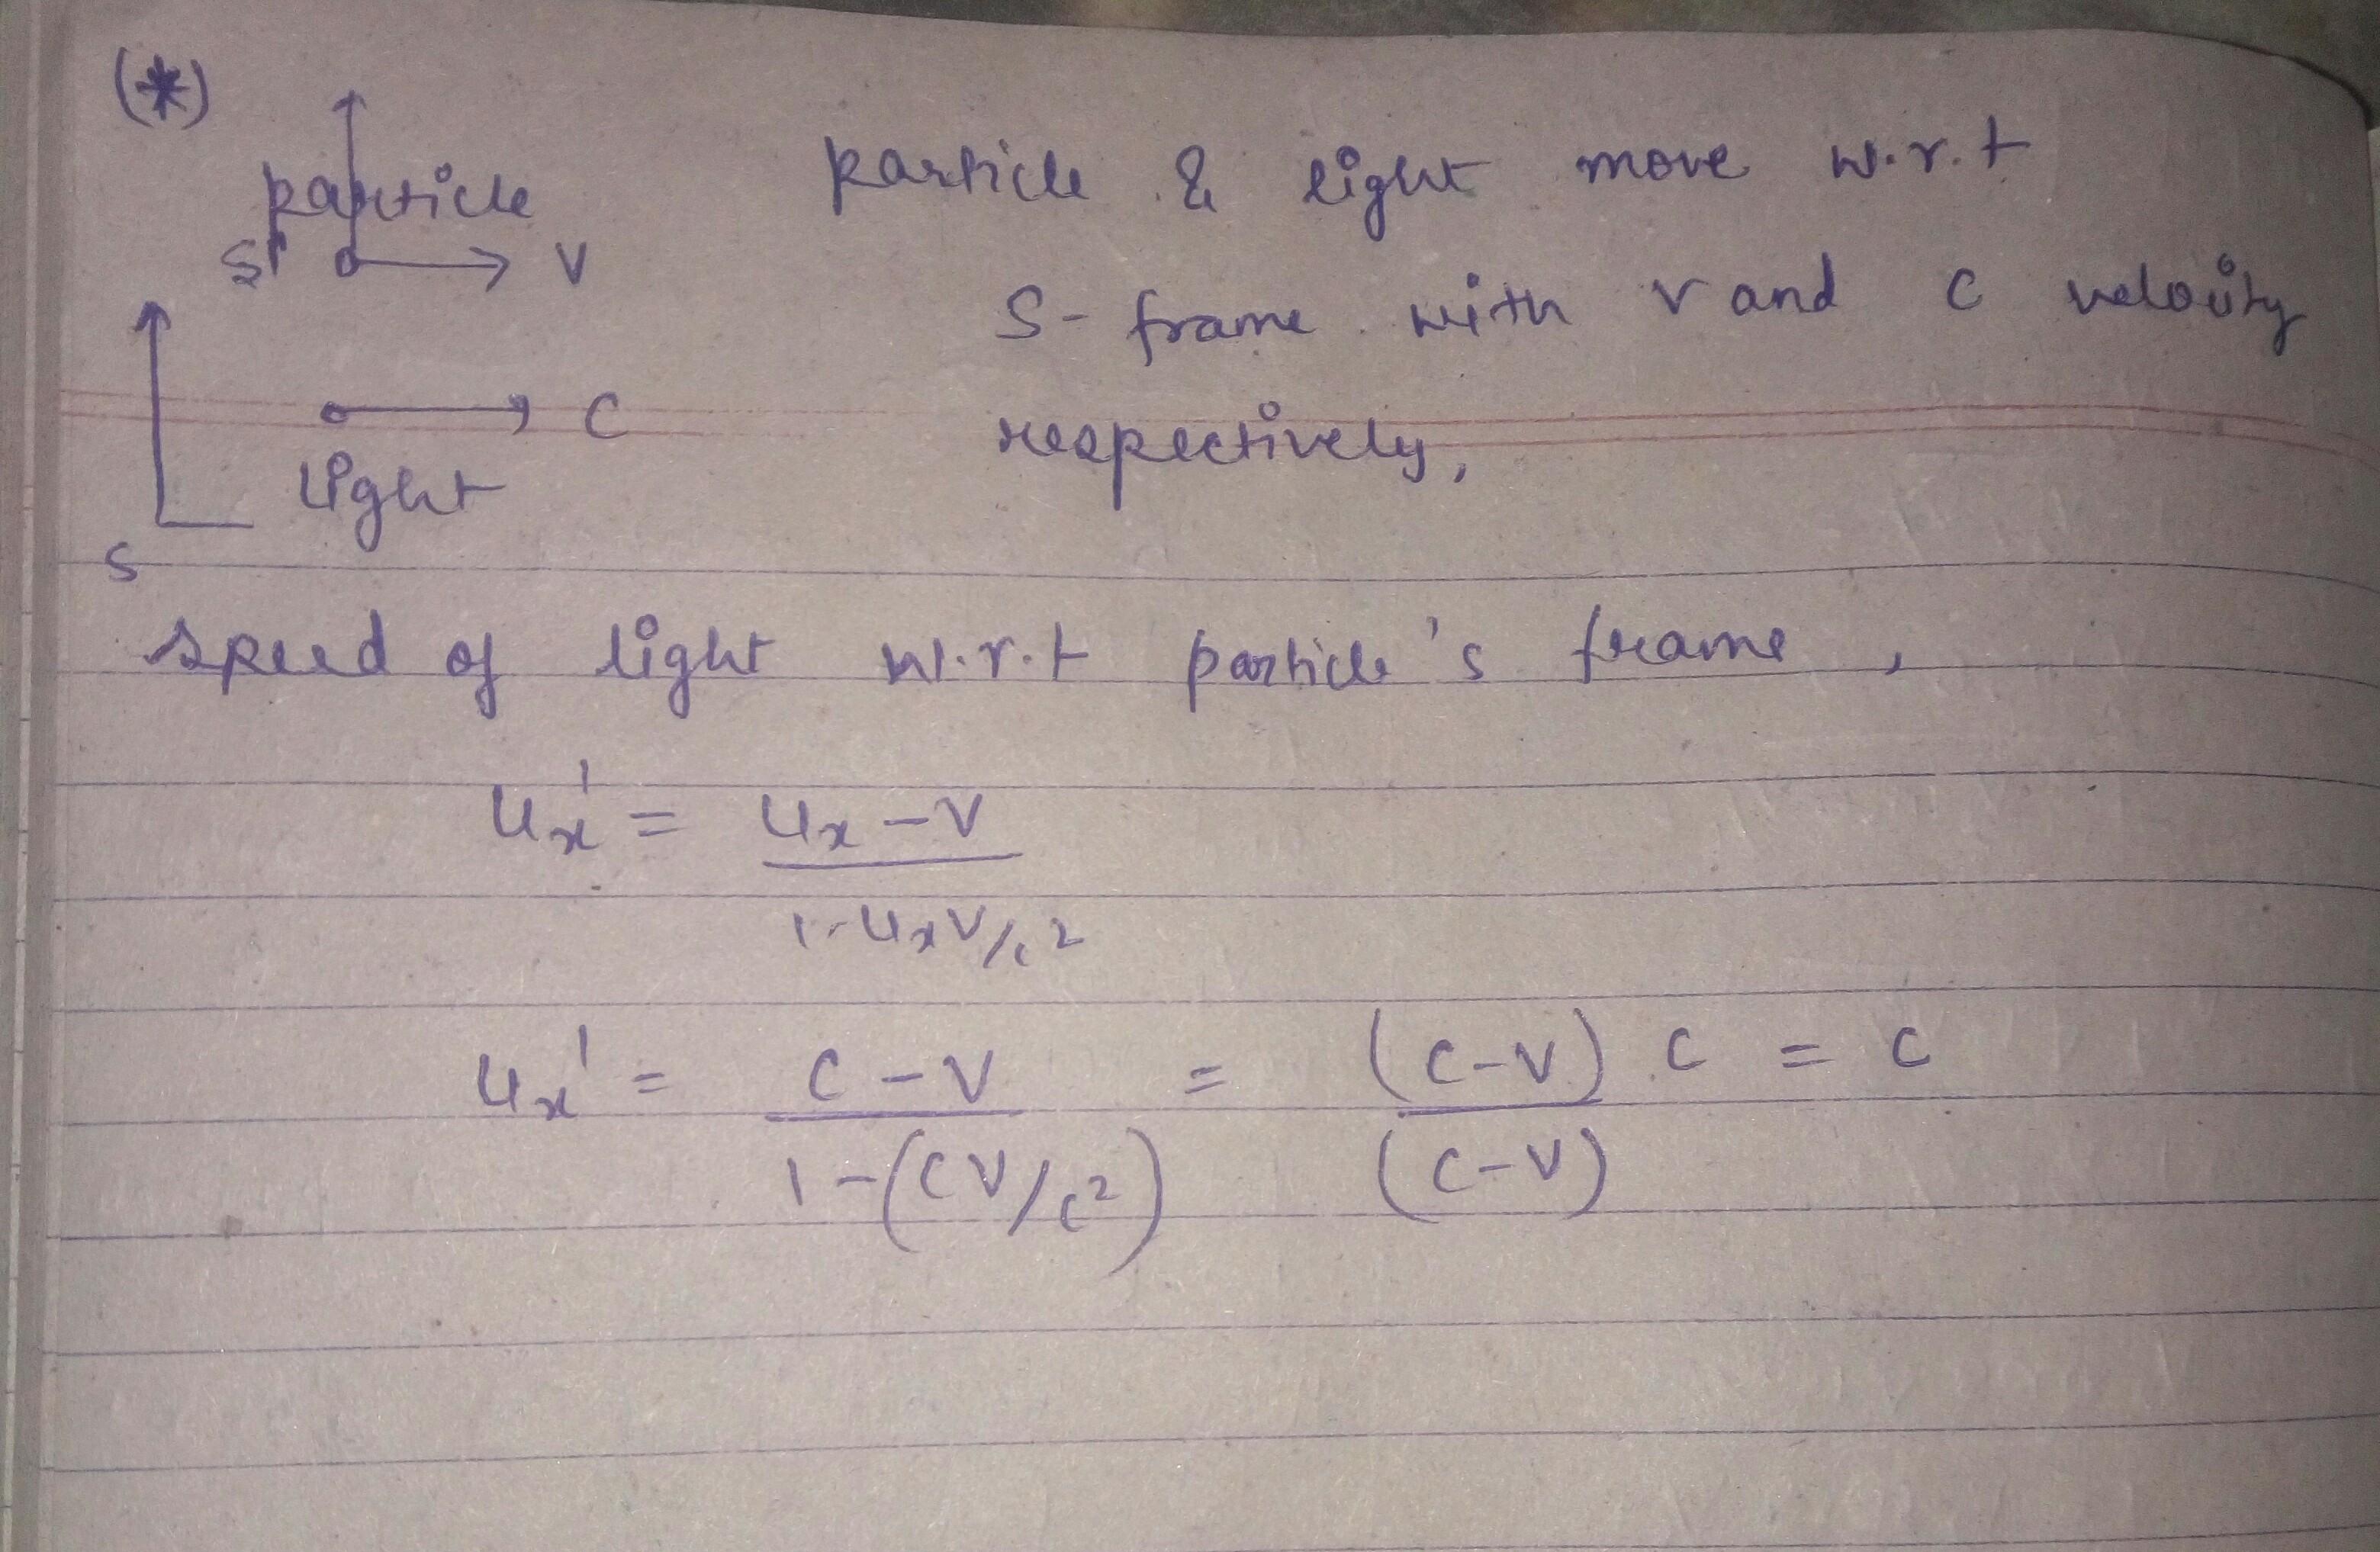 (*)
particle
S' V
C
light
S
particle & light move w.r.t
S- frame with v and c velocity
respectively,
speed of light w.r.t particle's frame,
Ux' = Ux - V / 1 - UxV/c²
Ux' = C - V / 1 - (CV/c²) = (C-V) . C / (C-V) = C